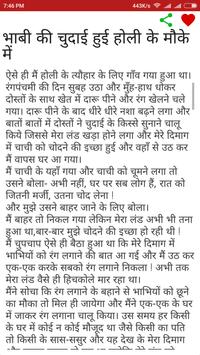 7:46 PM
443K/s
भाबी की चुदाई हुई होली के मौके
में
ऐसे ही मैं होली के त्यौहार के लिए गाँव गया हुआ था।
रंगपंचमी की दिन सुबह उठा और मुँह-हाथ धोकर
दोस्तों के साथ खेत में दारू पीने और रंग खेलने चले
गया। दारू पीने के बाद धीरे धीरे नशा बढ़ने लगा और
बातों बातों में दोस्तों ने चुदाई के किस्से सुनाने चालू
किये जिससे मेरा लंड खड़ा होने लगा और मेरे दिमाग
में चाची को चोदने की इच्छा हुई और वहाँ से उठ कर
मैं वापस घर आ गया।
मैं चाची के यहाँ गया और चाची को चूमने लगा तो
उसने बोला- अभी नहीं, घर पर सब लोग हैं, रात को
जितनी मर्जी, उतना चोद लेना !
और मुझे उसने बाहर जाने के लिए बोला।
मैं बाहर तो निकल गया लेकिन मेरा लंड अभी भी तना
हुआ था,बार-बार मुझे चोदने की इच्छा हो रही थी !
मैं चुपचाप ऐसे ही बैठा हुआ था कि मेरे दिमाग में
भाभियों को रंग लगाने की बात आ गई और मैं उठ कर
एक-एक करके सबको रंग लगाने निकला ! अभी तक
मेरा लंड वैसे ही हिचकोले मार रहा था।
मैंने सोचा कि रंग लगाने के बहाने से भाभियों को छूने
का मौका तो मिल ही जायेगा और मैंने एक-एक के के
घर में जाकर रंग लगाना चालू किया। उस समय हर किसी
के घर में कोई न कोई मौजूद था जैसे किसी का पति
तो किसी के सास-ससुर और यह देख कर मेरा दिमाग